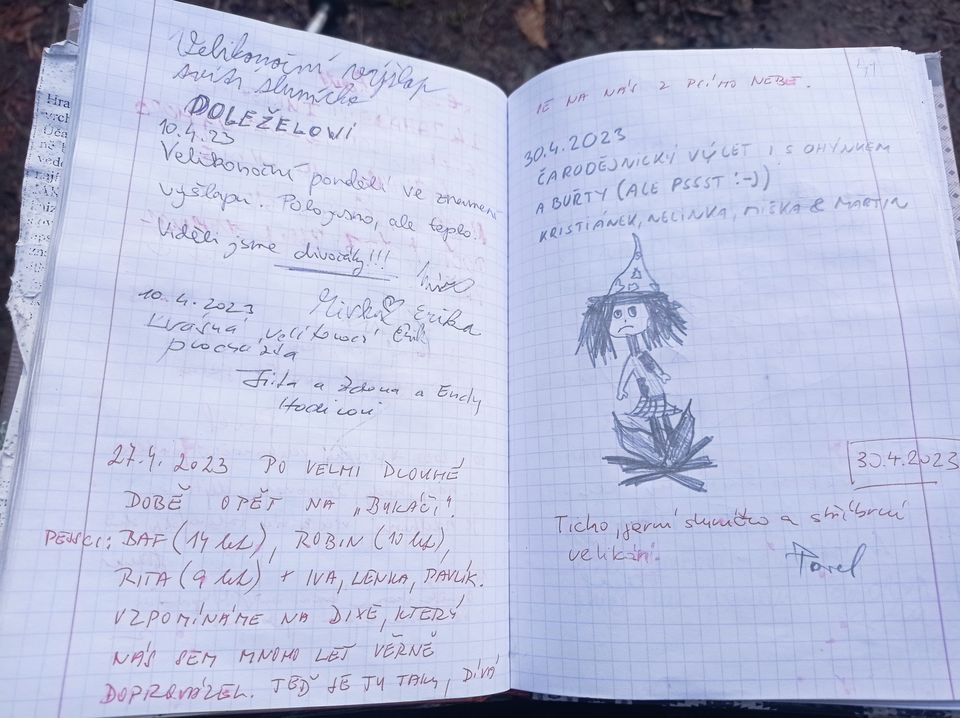 Velikonoční výšlap
svítí slunicko
DOLEŽELOVI
10.4.23
Velikonoční pondělí ve znamení
výšlapu. Polojasno, ale teplo.
Viděli jsme divočáky!!!
Mirka Erika
10.4.2023
krásná velikonoční
procházka
Jita a Zdena a Endy
27.4. 2023 PO VELMI DLOUHÉ
DOBĚ OPĚT NA „BUKAČI".
PEJSCI: BAF (14 let), ROBIN (10 let),
RITA (9 let) + IVA, LENKA, PAVLÍK.
VZPOMÍNÁME NA DIXE, KTERÝ
NÁS SEM MNOHO LET VĚRNĚ
DOPROVÁZEL. TEĎ SE TU TAKY, DÍVÁ
41
SE NA NÁS Z PSÍHO NEBE.
30.4.2023
ČARODĚJNICKÝ VÝLET I S OHÝNKEM
A BUŘTY (ALE PSSST :-))
KRISTIÁNEK, NELINKA, MIŠKA & MARTIN
30.4.2023
Ticho, jarní sluníčko a stříbrní
velikáni.
Pavel
Hra
vrch
Úča